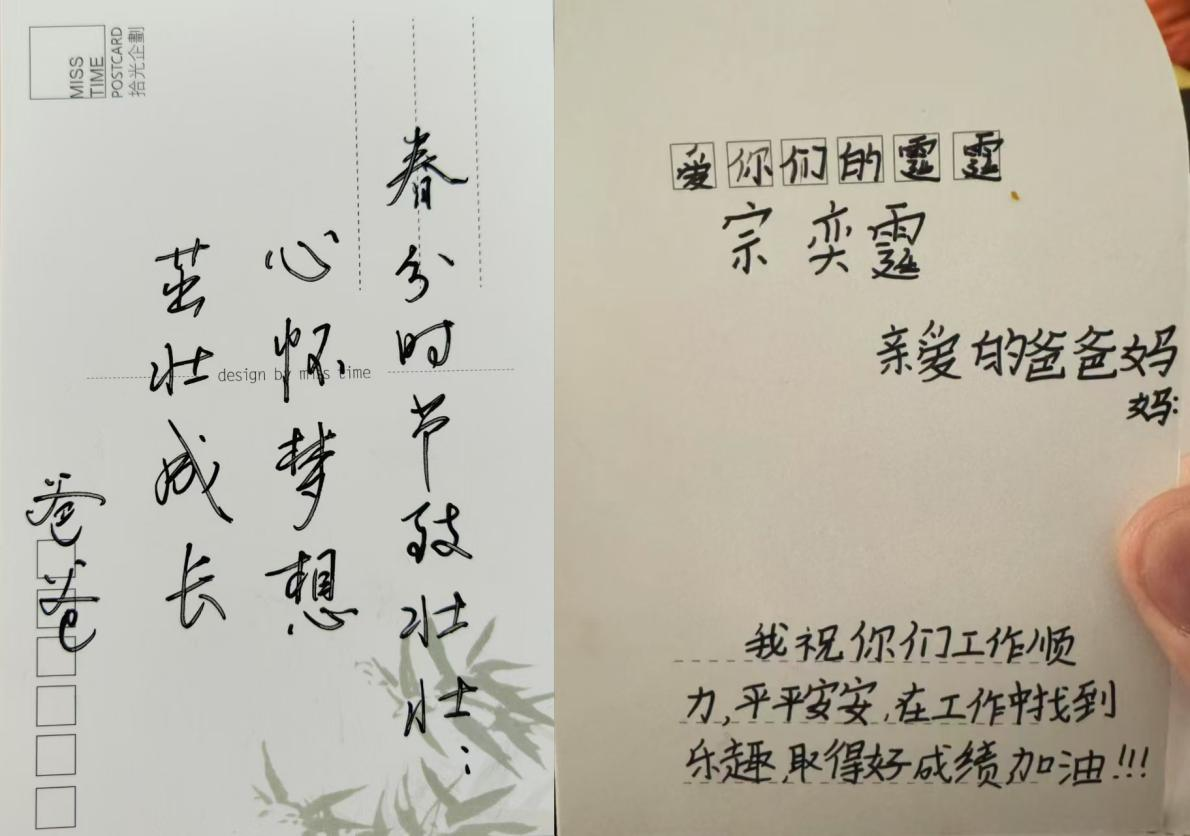 MISS
TIME
POSTCARD
拾光企劃
春分时节致壮壮:
心怀梦想
茁壮成长
爸爸
design by miss time
爱你们的霆霆
宗奕霆
亲爱的爸爸妈
妈:
我祝你们工作顺
力,平平安安,在工作中找到
乐趣,取得好成绩加油!!!